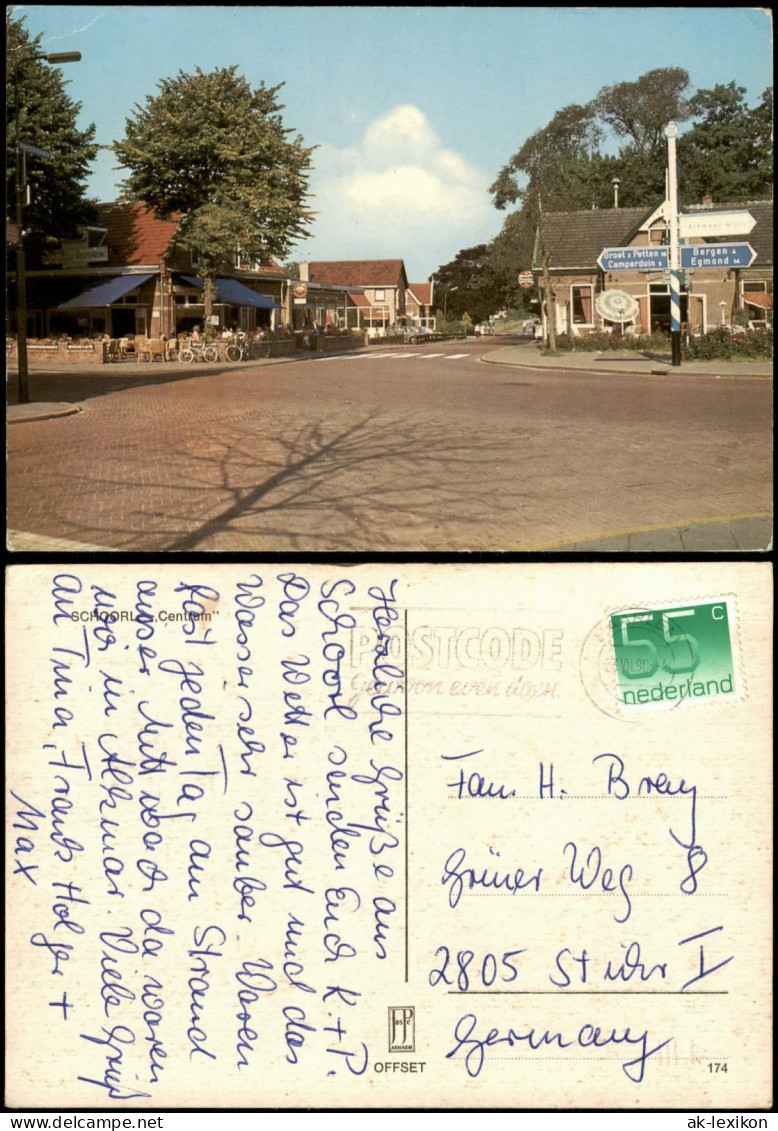 Groet 3 Petten
Camperduin 6
Alkmaar
Bergen
Egmond 14
SCHOORL „Centrum"
Herzliche Grüße aus
Schoorl senden Euch K. + P.
Das Wetter ist gut und das
Wasser sehr sauber. Waren
fast jeden Tag am Strand
außer Mittwoch da waren
wir in Alkmar. Viele Grüße
an Tina, Frank Holger +
Max
POSTCODE
Gewoon even doen.
VII.90
55 C
nederland
Fam. H. Brey
Grüner Weg 8
2805 Stuhr I
Germany
JosPé
ARNHEM
OFFSET
174
www.ansichtskarten-lexikon.de
ak-lexikon